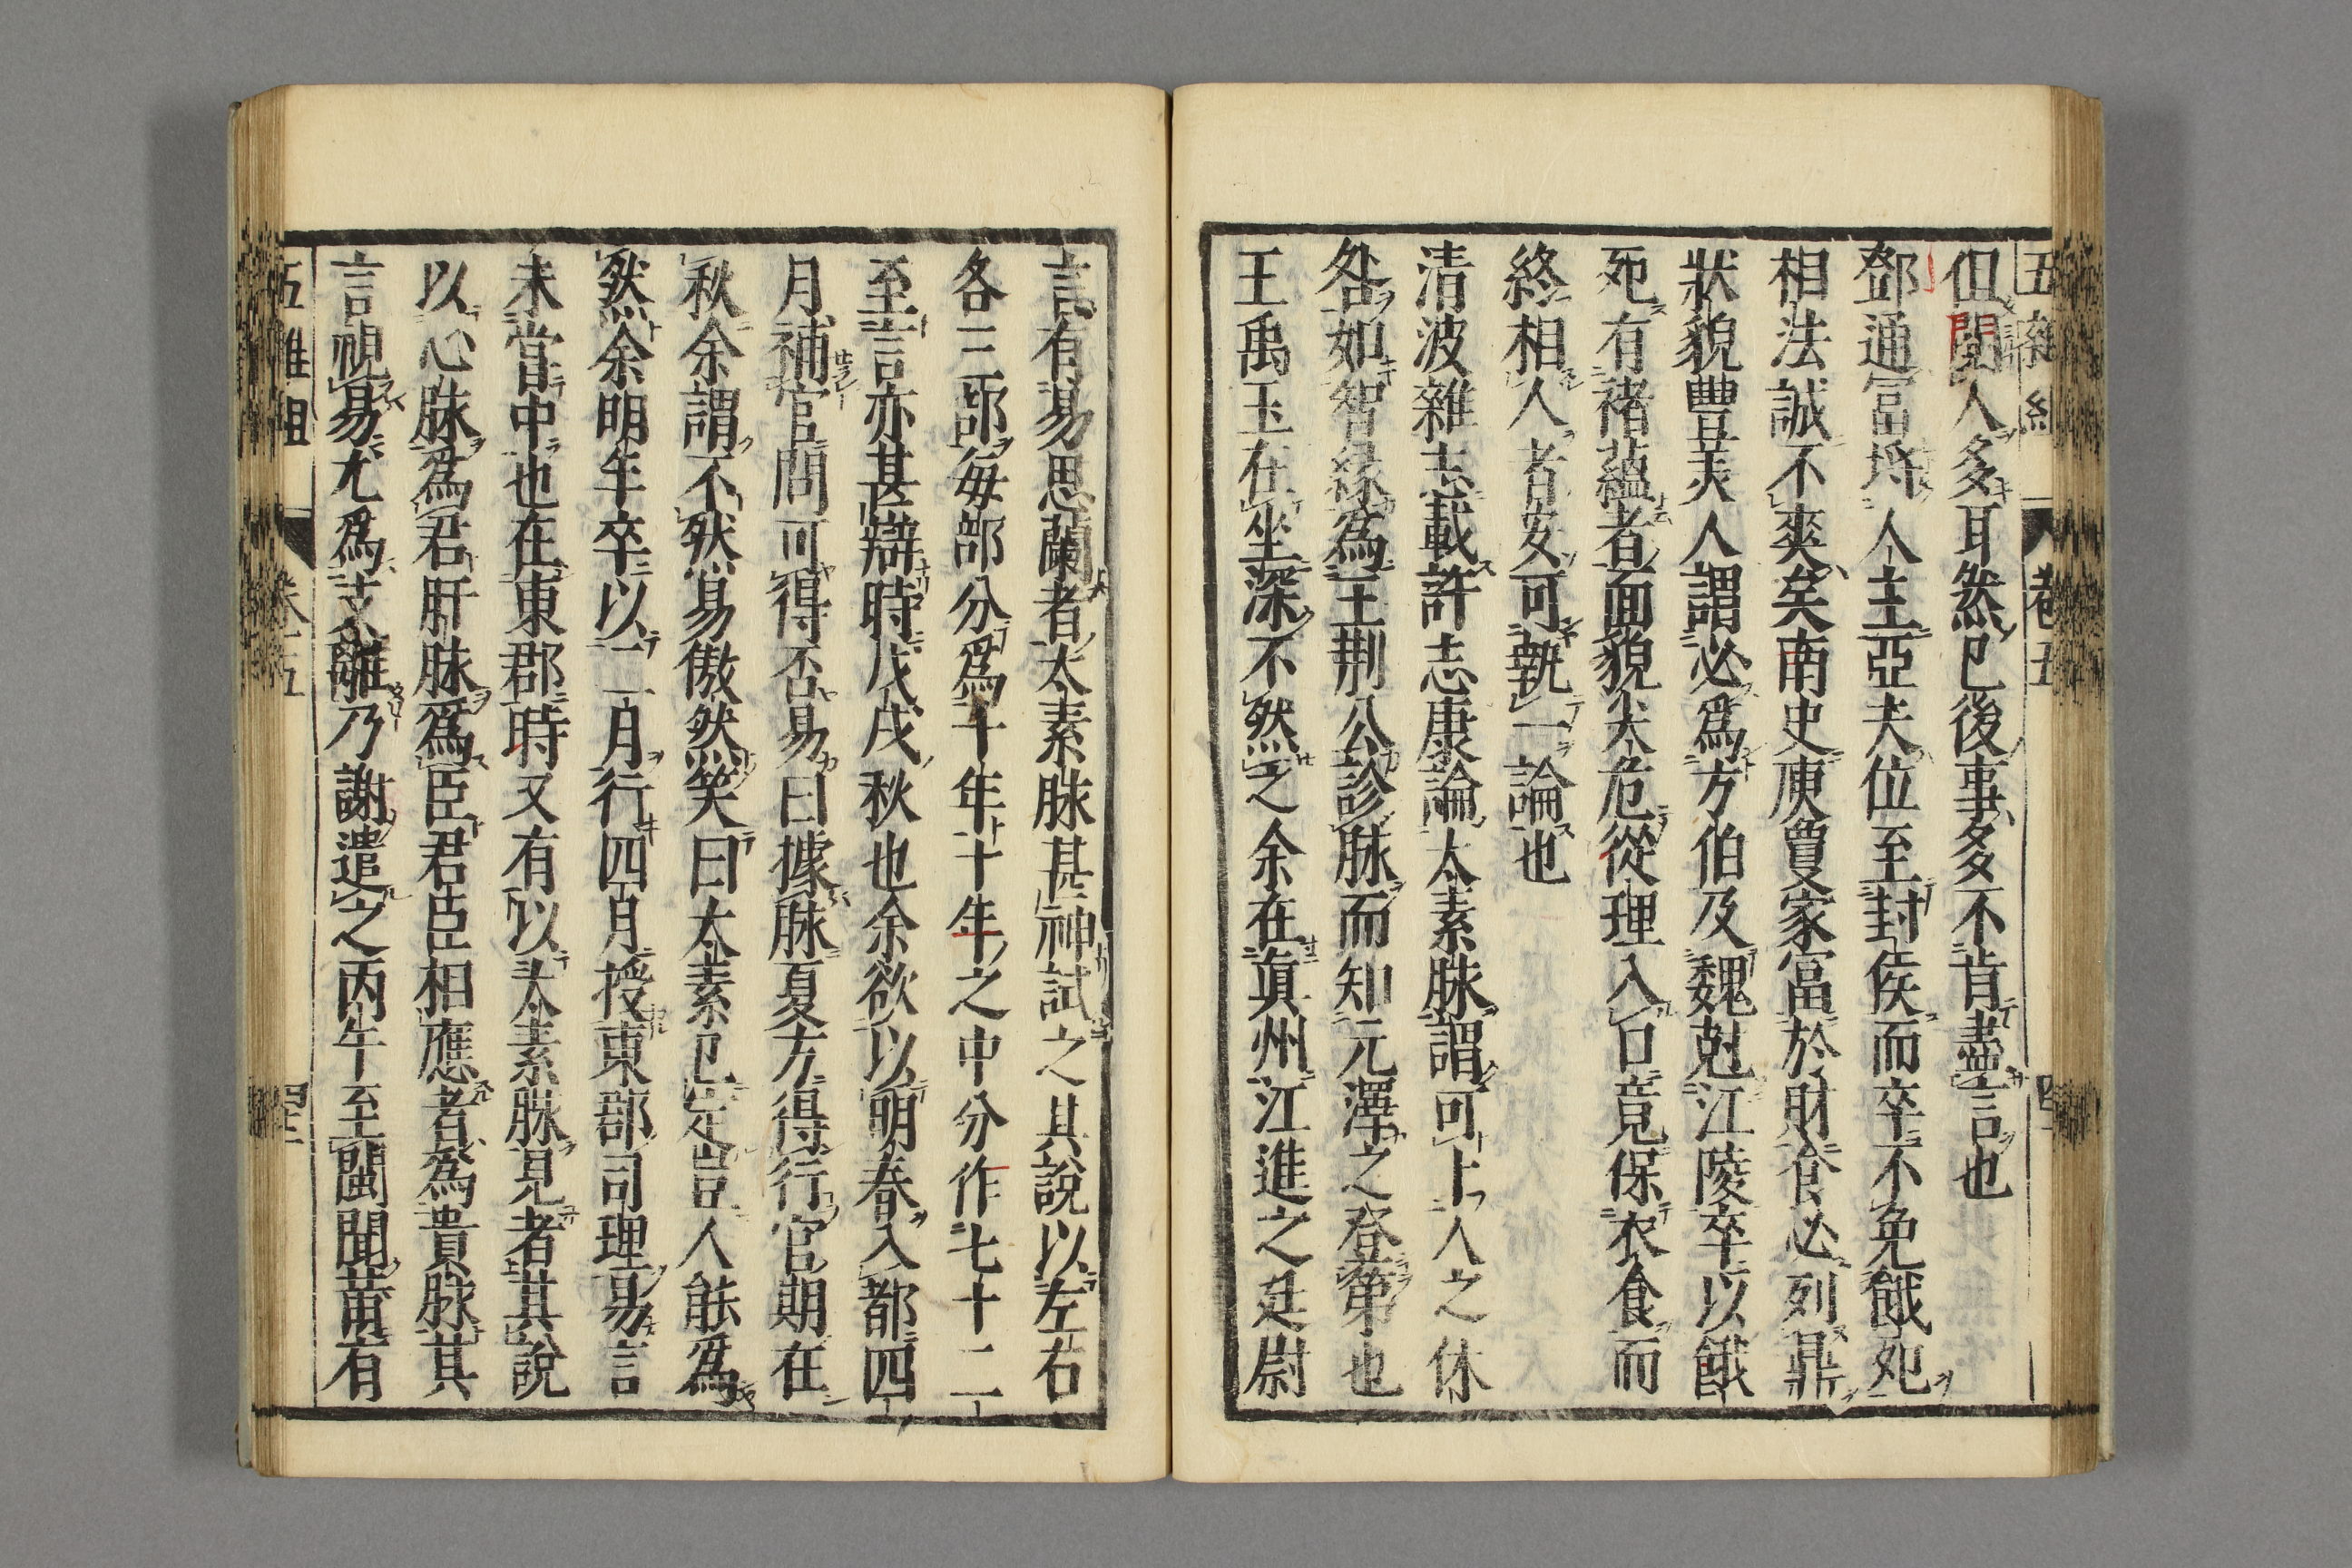 但閱人多耳然已後事多不肯盡言也
鄧通富埒人主亞夫位至封侯而卒不免餓死
相法誠不爽矣南史庾敻家富於財食必列鼎
狀貌豊美人謂必爲方伯及魏剋江陵卒以餓
死有褚蘊者面貌尖危從理入口竟保衣食而
終相人者安可執一論也
清波雜志載許志康論太素脉謂可卜人之休
咎如智緣爲王荆公診脉而知元澤之登第也
王禹玉在坐深不然之余在眞州江進之廷尉
言有易思蘭者太素脉甚神試之其說以左右
各三部每部分爲十年十年之中分作七十二
至言亦甚辯時戊戌秋也余欲以明春入都四
月補官問可得否易曰據脉夏方得行官期在
秋余謂不然易傲然笑曰太素已定豈人能爲
然余明年卒以二月行四月授東郡司理易言
未嘗中也在東郡時又有以太素脉見者其說
以心脉爲君肝脉爲臣君臣相應者爲貴脉其
言視易尤爲支離乃謝遣之丙午至閩聞莆有
五雜組
卷五